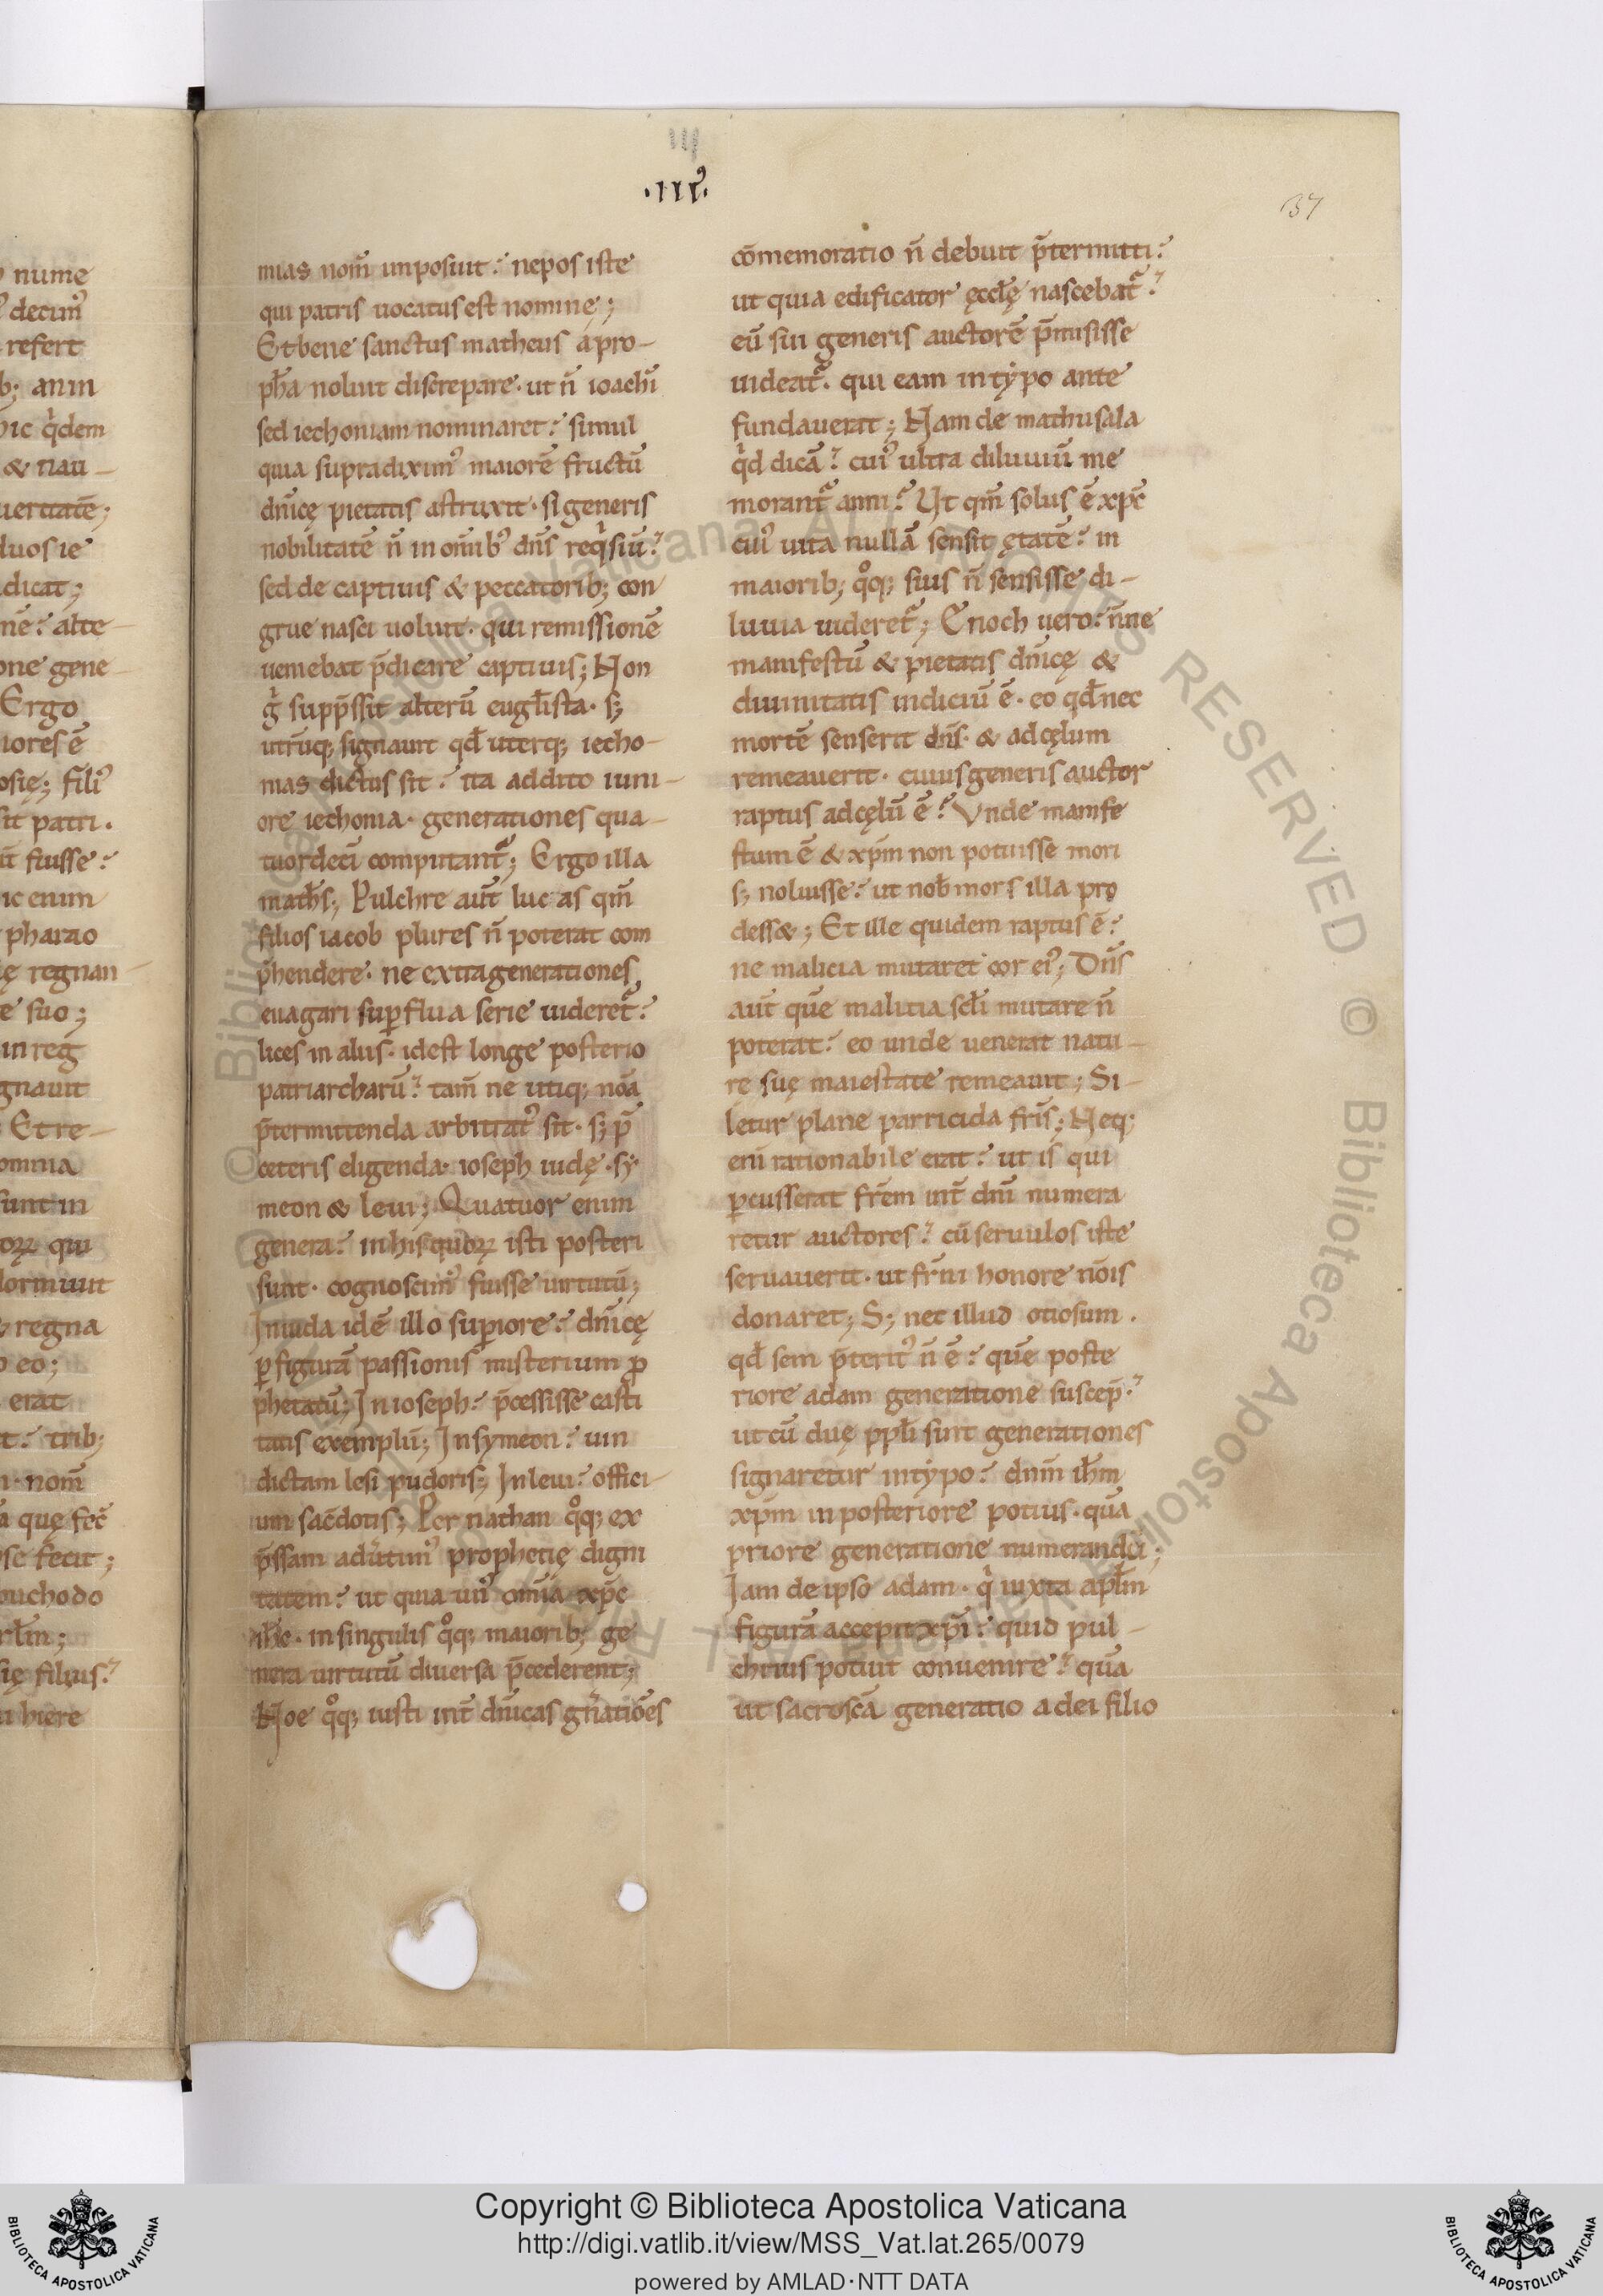 ·III·
37
mias nom̄ inposuit? nepos iste
qui patris uocatus est nomine;
Et bene sanctus matheus a pro-
ph̄a noluit discrepare· ut n̄ ioachī
sed iechoniam nominaret? simul
quia supra diximꝰ maiorē fructū
dn̄icę pietatis astruxit· si generis
nobilitatē n̄ in om̄ibꝰ dn̄s reqͥsiū?
sed de captiuis & peccatorib; con
grue nasci uoluit· qui remissionē
ueniebat p̄dicare captiuis; Non
gͥ supp̄ssit alterū eugl̄ista· s;
utrūq; signauit qd̄ uterq; iecho-
nias dictus sit? ita addito iuni-
ore iechonia· generationes qua-
tuordecī computant᷑; Ergo illa
math̄s; Pulchre aut̄ lucas qm̄
filios iacob plures n̄ poterat com
p̄hendere· ne extra generationes
euagari suꝑflua serie uideret᷑?
lices in aliis· id est longe posterio
patriarcharū? tam̄ ne utiq; nōa
p̄termittenda arbitratꝰ sit· s; p̄
ceteris eligenda· ioseph iudę· sy
meon & leui; Quatuor enim
genera? in his quoꝝ isti posteri
sunt· cognoscimꝰ fuisse uirtutū;
In iuda idē illo suꝑiore? dn̄icę
ꝑ figurā passionis misterium ꝓ
phetatū; In ioseph? p̄cessisse casti
tatis exemplū; In symeon? uin
dictam lesi pudoris; In leui? offici-
um sac̄dotis; Per nathan qͦq; ex
p̄ssam aduͣtimꝰ prophetię digni
tatem? ut quia unꝰ om̄ia xp̄c
ih̄c· in singulis qͦq; maiorib; ge
nera uirtutū diuersa p̄cederent;
Noe qͦq; iusti int̄ dn̄icas gn̄atiōes
cōmemoratio n̄ debuit p̄termitti?
ut quia edificator ęccl̄ę nascebat᷑?
eū sui generis auctorē p̄misisse
uideat᷑· qui eam in typo ante
fundauerat; Nam de mathusala
qͥd dicā? cuiꝰ ultra diluuiū me
morant᷑ anni? Ut qm̄ solus ē xp̄c
cuiꝰ uita nullā sensit ętatē? in
maiorib; qͦq; suis n̄ sensisse di-
luuia uideret᷑; Enoch uero? n̄ne
manifestū & pietatis dn̄icę &
diuinitatis indiciū ē· eo qd̄ nec
mortē senserit dn̄s· & ad cęlum
remeauerit· cuius generis auctor
raptus ad cęlū ē? Vnde manife
stum ē & xp̄m non potuisse mori
s; noluisse? ut nob̄ mors illa pro
dess&; Et ille quidem raptus ē?
ne malicia mutaret cor eiꝰ; Dn̄s
aut̄ quē malitia scl̄i mutare n̄
poterat? eo unde uenerat natu-
re suę maiestate remeauit; Si-
letur plane parricida fr̄is; Neq;
eni rationabile erat? ut is qui
ꝑcusserat fr̄em int̄ dn̄i numera
retur auctores? cū seruulos iste
seruauerit· ut fr̄ni honore nōis
donaret; S; nec illud otiosum·
qd̄ sem p̄teritꝰ n̄ ē? quē poste
riore adam generatione suscep̄?
ut cū duę ppl̄i sint generationes
signaretur in typo? dn̄m ih̄m
xp̄m in posteriore potius· quā
priore generatione numerandū;
Iam de ipso adam· qͥ iuxta apl̄m
figurā accepit xp̄i? quid pul-
chrius potuit conuenire? quā
ut sacroscā generatio a dei filio
Copyright © Biblioteca Apostolica Vaticana
http://digi.vatlib.it/view/MSS_Vat.lat.265/0079
powered by AMLAD·NTT DATA